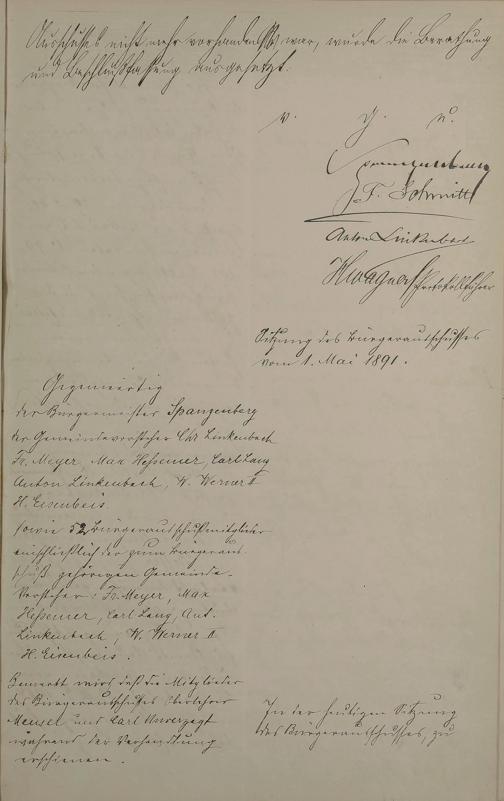 Ausschusses nicht mehr vorhanden war, wurde die Berathung
und Beschlußfassung ausgesetzt.
v. g. u.
Spangenberg
F. Schmitt
Anton Linkenbach
Wagner Protokollführer
Sitzung des Bürgerausschusses
vom 1. Mai 1891.
Gegenwärtig
der Bürgermeister Spangenberg
der Gemeindevorsteher Chr Linkenbach
Fr. Meyer, Max Hessemer, Carl Lang
Anton Linkenbach, W. Werner II
H. Eisenbeis.
sowie 52 Bürgerausschußmitglieder
einschließlich der zum Bürgeraus
schuß gehörigen Gemeinde-
Vorsteher: Fr. Meyer, Max
Hessemer, Carl Lang, Ant.
Linkenbach, W. Werner II
H. Eisenbeis.
Bemerkt wird daß die Mitglieder
des Bürgerausschusses Oberlehrer
Meusel und Carl Unverzagt
während der Verhandlung
erschienen.
In der heutigen Sitzung
des Bürgerausschusses, zu